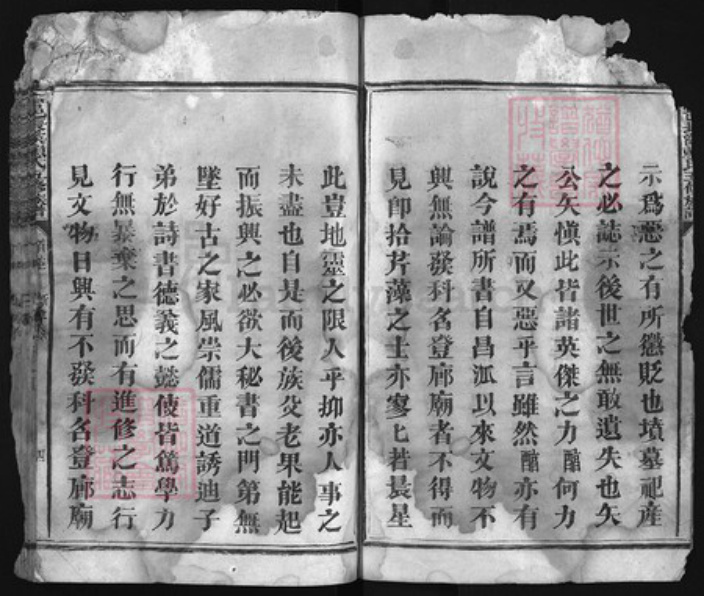 示爲惡之有所懲貶也墳墓祀産
之必誌示後世之無敢遺失也矢
公矢愼此皆諸英傑之力醮何力
之有焉而又惡乎言雖然醮亦有
說今譜所書自昌泒以來文物不
興無論發科名登廊廟者不得而
見卽拾芹藻之士亦寥匕若晨星
此豈地靈之限人乎抑亦人事之
未盡也自是而後族父老果能起
而振興之必欲大秘書之門第無
墜好古之家風崇儒重道誘迪子
弟於詩書德義之懿使皆篤學力
行無暴棄之思而有進修之志行
見文物日興有不發科名登廊廟
四